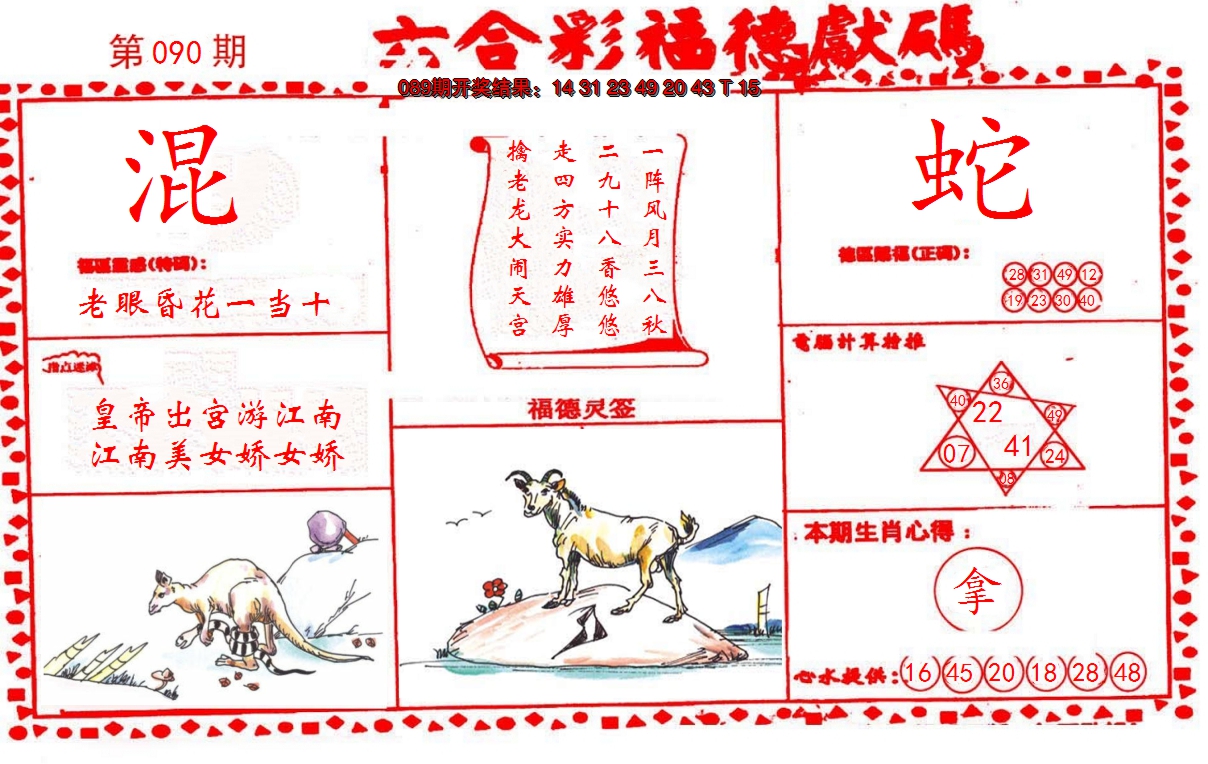 六合彩福德獻碼
第 090 期
089期开奖结果：14 31 23 49 20 43 T 15
混
福區靈感(特碼)：
老眼昏花一当十
指点迷津
皇帝出宫游江南
江南美女娇女娇
一阵风月三八秋
二九十八香悠悠
走四方实力雄厚
擒老龙大闹天宫
福德灵签
蛇
德區賜福(正碼)：
28 31 49 12
19 23 30 40
電腦計算檢推
36
40 22 49
07 41 24
08
本期生肖心得：
拿
心水提供：16 45 20 18 28 48